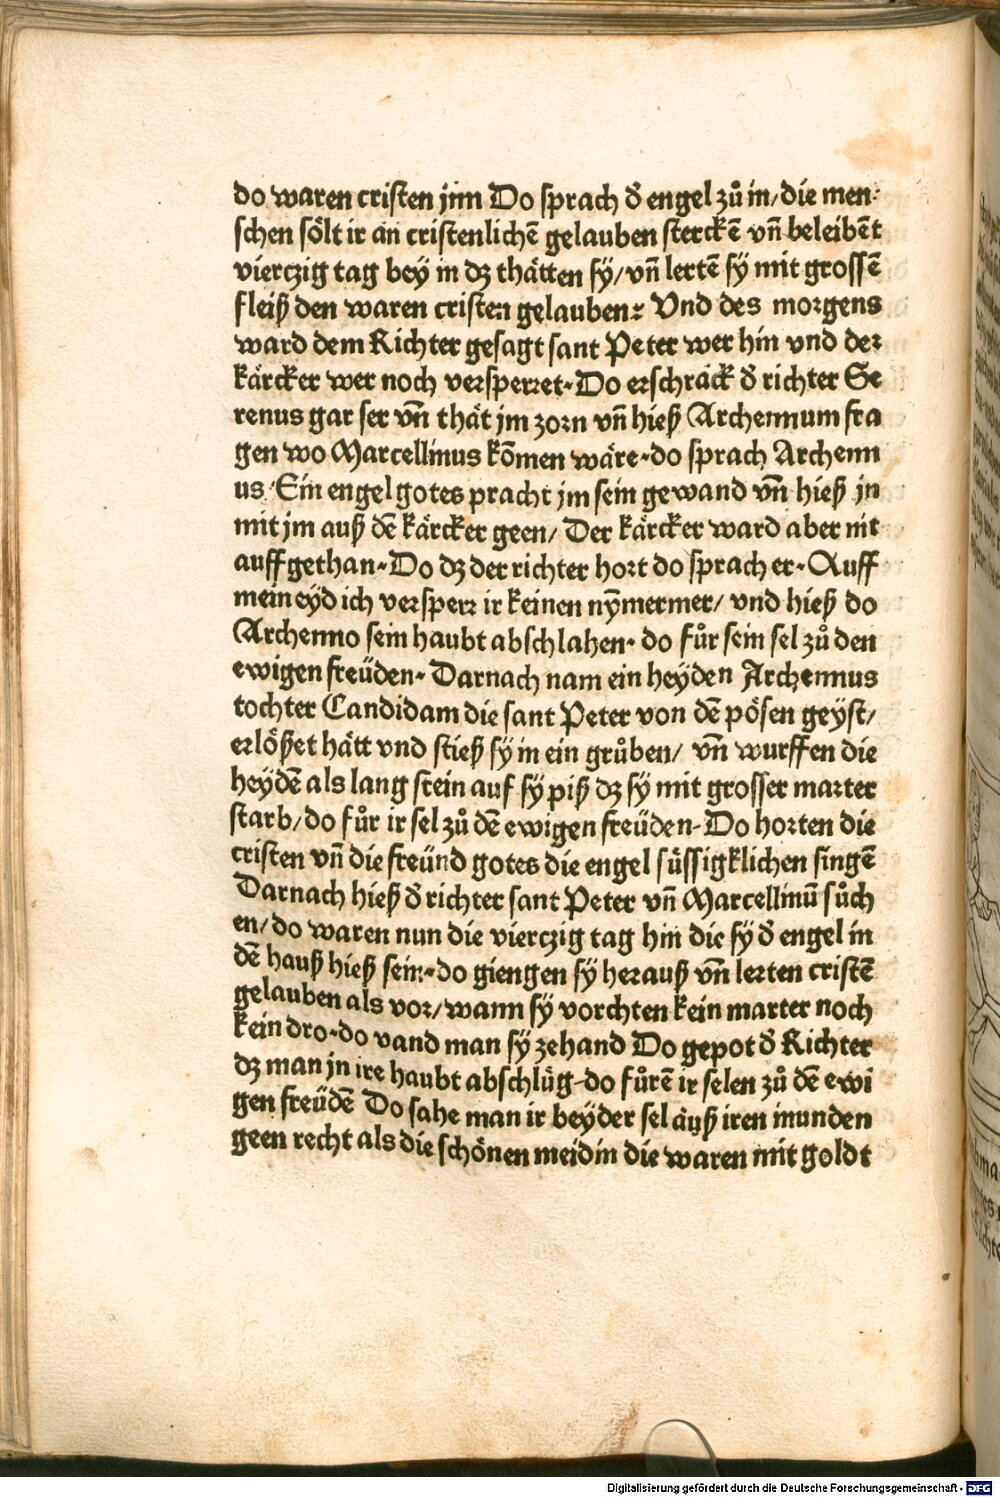 do waren cristen jnn Do sprach d̕ engel zů in/die men-
schen sőlt ir an cristenlichē gelauben sterckē vñ beleibēt
vierczig tag bey in dz thåtten sÿ/vñ lertē sÿ mit grossē
fleiß den waren cristen gelauben: Vnd des morgens
ward dem Richter gesagt sant Peter wer hin vnd der
kårcker wer noch versperret. Do erschrack d̕ richter Se
renus gar ser vñ thåt jm zorn vñ hieß Archennum fra
gen wo Marcellinus kōmen wåre. do sprach Archenn
us/Ein engel gotes pracht jm sein gewand vñ hieß jn
mit jm auß dē kårcker geen/ Der kårcker ward aber nit
auff gethan. Do dz der richter hort do sprach er. Auff
mein eÿd ich versperr ir keinen nȳmermer/ vnd hieß do
Archenno sein haubt abschlahen. do fůr sein sel zů den
ewigen freüden. Darnach nam ein heÿden Archennus
tochter Candidam die sant Peter von dē pősen geÿst/
erlőßet hått vnd stieß sÿ in ein grůben/ vñ wurffen die
heÿdē als lang stein auf sÿ piß dz sÿ mit grosser marter
starb/do fůr ir sel zů dē ewigen freüden. Do horten die
cristen vñ die freünd gotes die engel süssigklichen singē
Darnach hieß d̕ richter sant Peter vñ Marcellinū sůch
en/do waren nun die vierczig tag hin die sÿ d̕ engel in
dē hauß hieß sein. do giengen sÿ herauß vñ lerten cristē
gelauben als vor/wann sÿ vorchten kein marter noch
kein dro. do vand man sÿ zehand Do gepot d̕ Richter
dz man jn ire haubt abschlüg. do fůrē ir selen zů dē ewi
gen freüdē Do sahe man ir beÿder sel auß iren munden
geen recht als die schőnen meidin die waren mit goldt
Digitalisierung gefördert durch die Deutsche Forschungsgemeinschaft - DFG